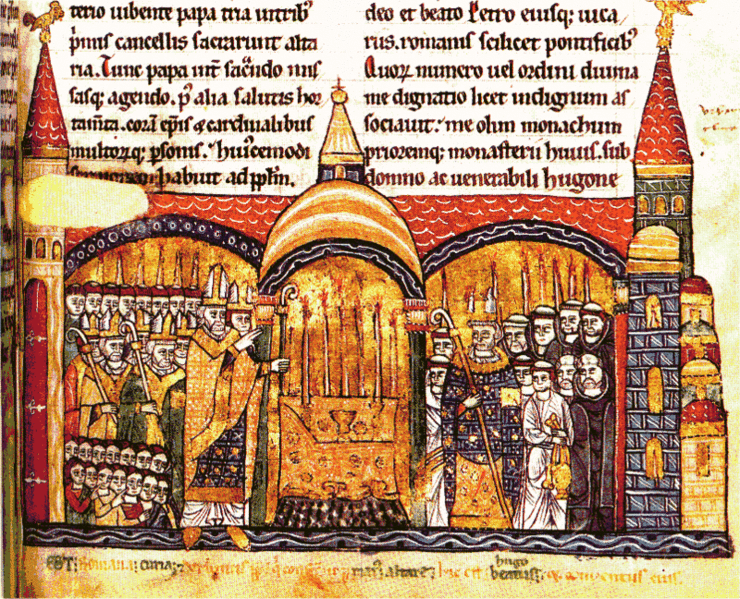 terio iubente papa tria in tribꝰ
p̄mis cancellis sacrarunt alta
ria. Tunc papa int̄ sac̄ndo mis
sasq; agendo. p̄ alia salutis hor
tam̄ta. corā ep̄is & cardinalibus
multorq; p̄sonis. huicemodi
habuit ad pp̄lm.
deo et beato Petro eiusq; uica
rus. romanis scilicet pontificibꝰ
Quoꝝ numero uel ordini diuina
me dignatio licet indignum as
sociauit. me olim monachum
prioremq; monasterii huius. sub
domno ac uenerabili hugone
romana curia
altare
hugo